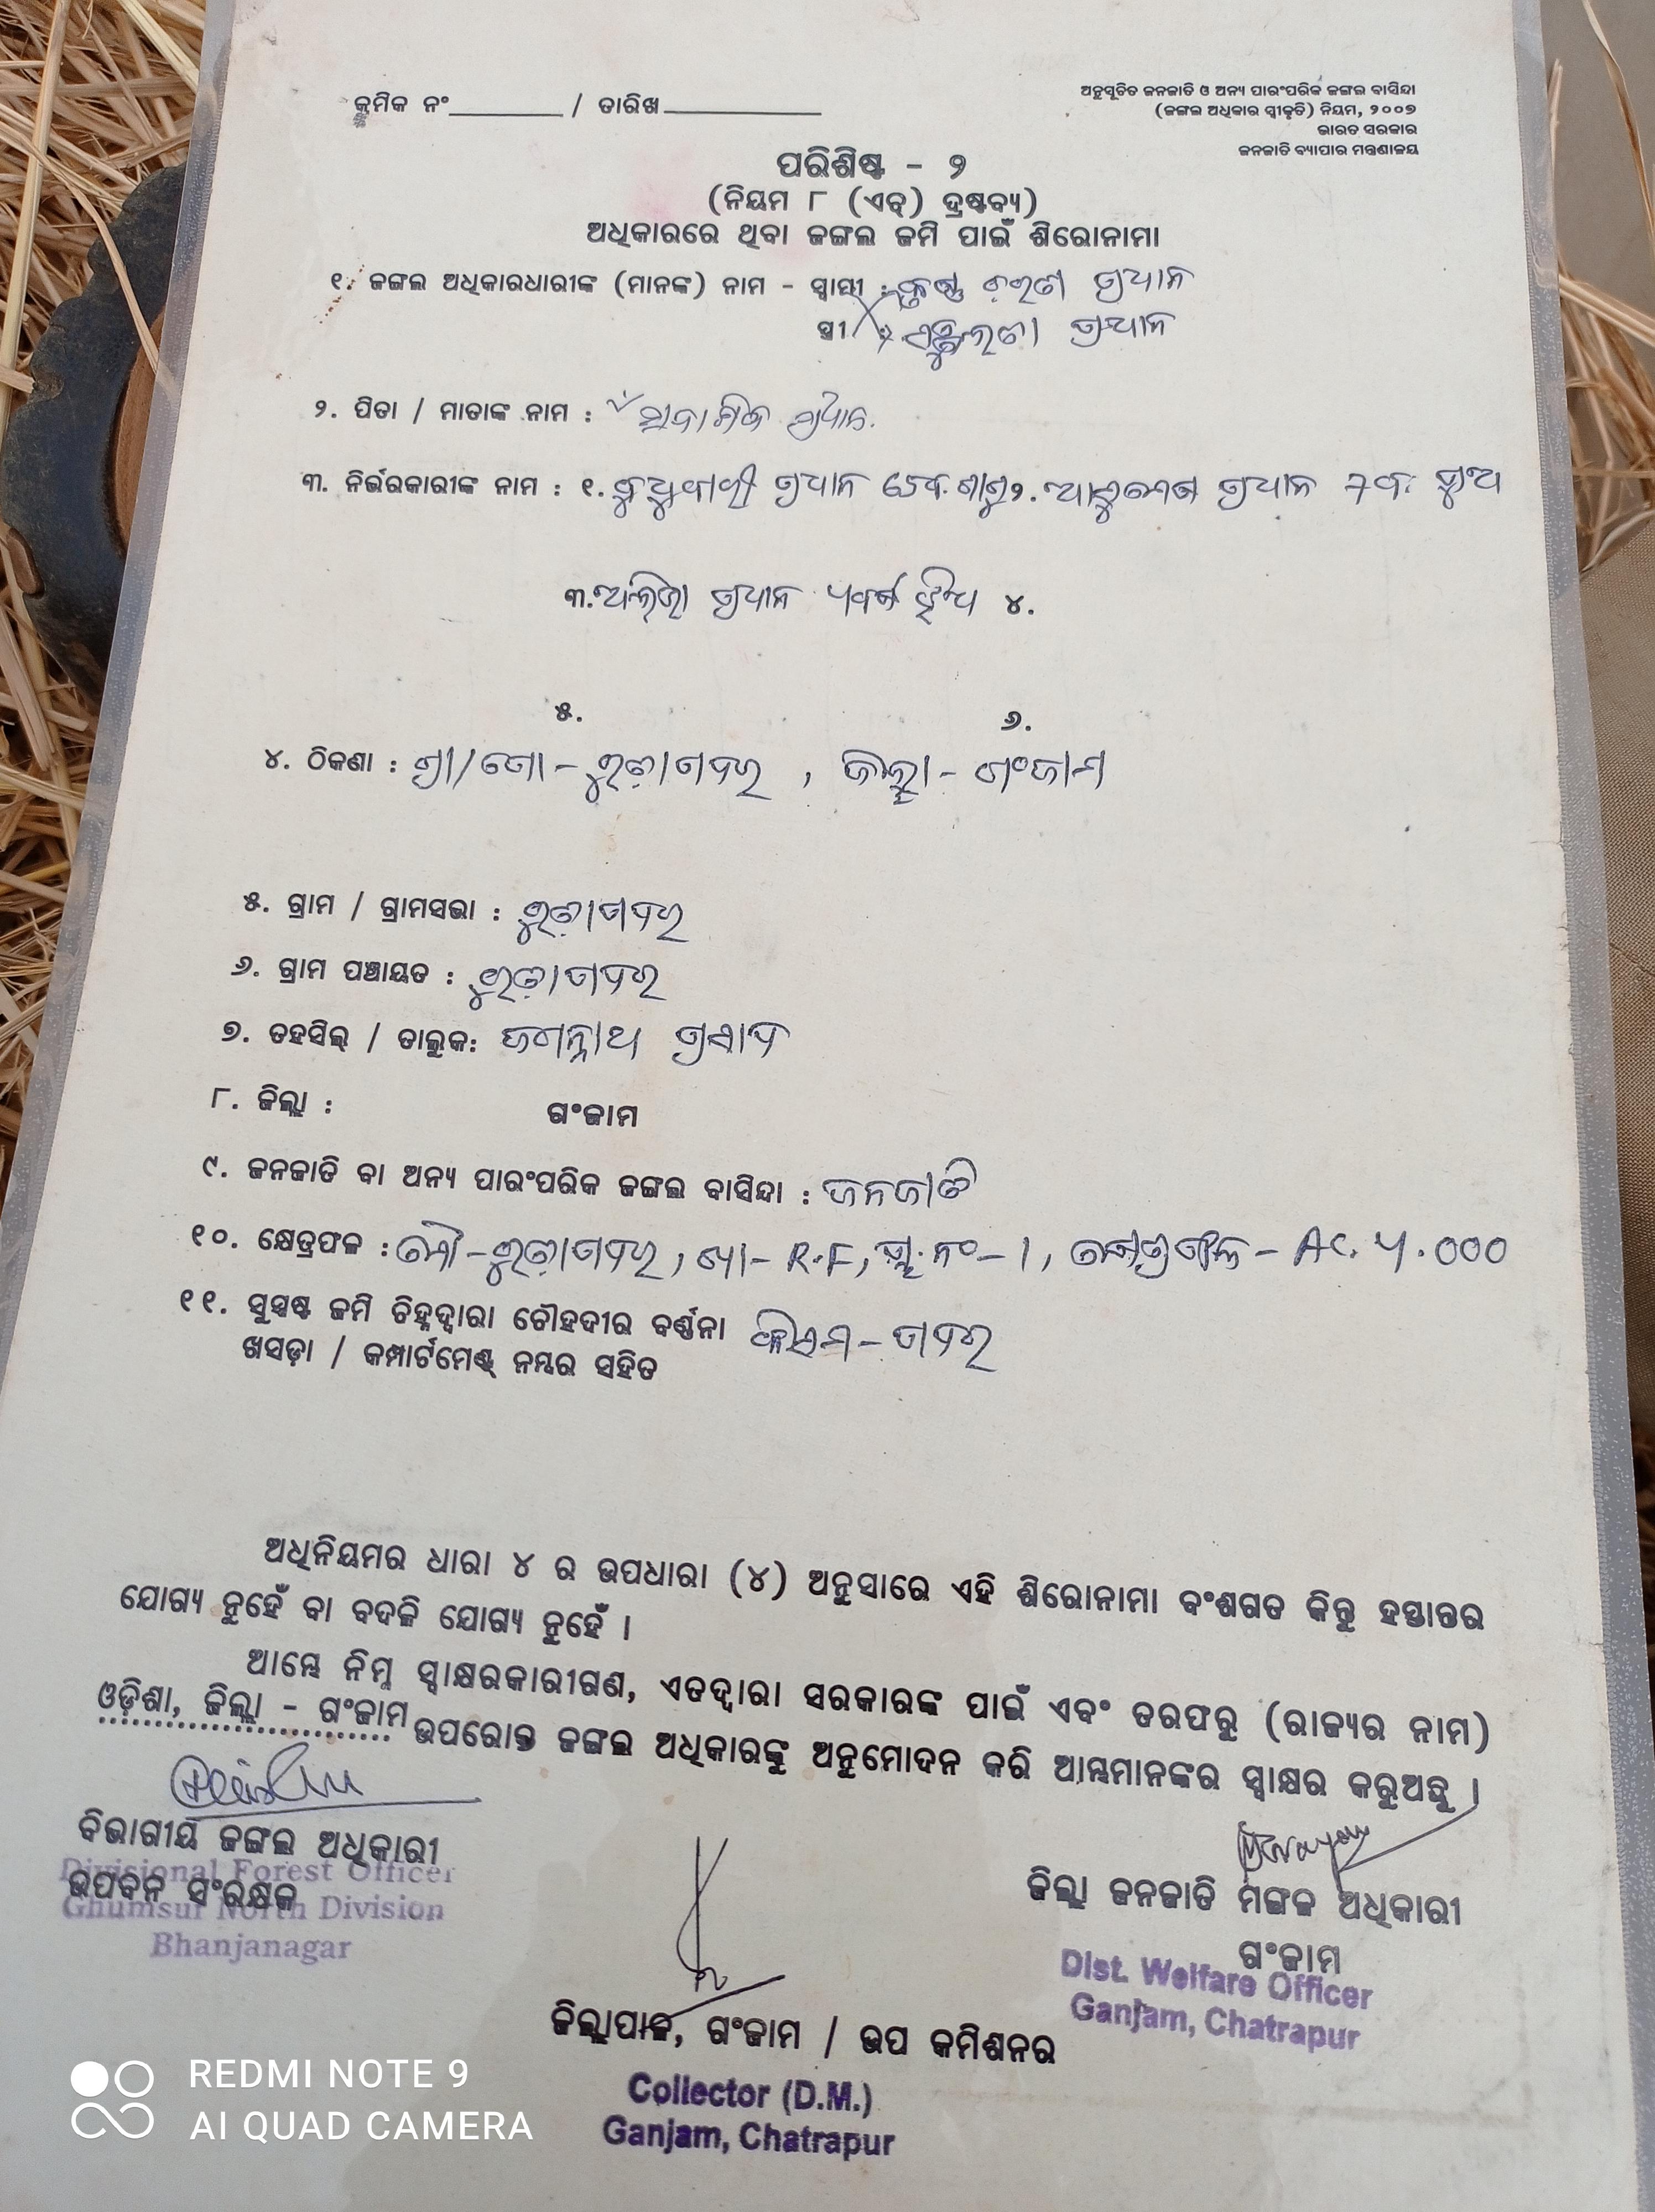 କ୍ରମିକ ନଂ / ତାରିଖ
ଅନୁସୂଚିତ ଜନଜାତି ଓ ଅନ୍ୟ ପାରଂପରିକ ଜଙ୍ଗଲ ବାସିନ୍ଦା
(ଜଙ୍ଗଲ ଅଧିକାର ସ୍ୱୀକୃତି) ନିୟମ, ୨୦୦୭
ଭାରତ ସରକାର
ଜନଜାତି ବ୍ୟାପାର ମନ୍ତ୍ରଣାଳୟ
ପରିଶିଷ୍ଟ - ୨
(ନିୟମ ୮ (ଏଚ୍) ଦ୍ରଷ୍ଟବ୍ୟ)
ଅଧିକାରରେ ଥିବା ଜଙ୍ଗଲ ଜମି ପାଇଁ ଶିରୋନାମା
୧. ଜଙ୍ଗଲ ଅଧିକାରଧାରୀଙ୍କ (ମାନଙ୍କ) ନାମ - ସ୍ୱାମୀ : ପ୍ରଧାନ
ସ୍ତ୍ରୀ : ପ୍ରଧାନ
୨. ପିତା / ମାତାଙ୍କ ନାମ : ପ୍ରଧାନ
୩. ନିର୍ଭରକାରୀଙ୍କ ନାମ : ୧. ପ୍ରଧାନ ୨. ପ୍ରଧାନ
୩. ପ୍ରଧାନ ୪.
୫. ୬.
୪. ଠିକଣା : ଗ୍ରା/ପୋ - , ଜିଲ୍ଲା - ଗଂଜାମ
୫. ଗ୍ରାମ / ଗ୍ରାମସଭା :
୬. ଗ୍ରାମ ପଞ୍ଚାୟତ :
୭. ତହସିଲ୍ / ତାଲୁକ: ଜଗନ୍ନାଥ ପ୍ରସାଦ
୮. ଜିଲ୍ଲା : ଗଂଜାମ
୯. ଜନଜାତି ବା ଅନ୍ୟ ପାରଂପରିକ ଜଙ୍ଗଲ ବାସିନ୍ଦା : ଜନଜାତି
୧୦. କ୍ଷେତ୍ରଫଳ : ମୌ - , ଖା - R.F, ପ୍ଲ. ନଂ - 1,
୧୧. ସୁସ୍ପଷ୍ଟ ଜମି ଚିହ୍ନଦ୍ୱାରା ଚୌହଦୀର ବର୍ଣ୍ଣନା
ଖସଡ଼ା / କମ୍ପାର୍ଟମେଣ୍ଟ ନମ୍ବର ସହିତ
ଅଧିନିୟମର ଧାରା ୪ ର ଉପଧାରା (୪) ଅନୁସାରେ ଏହି ଶିରୋନାମା ବଂଶଗତ କିନ୍ତୁ ହସ୍ତାନ୍ତର
ଯୋଗ୍ୟ ନୁହେଁ ବା ବଦଳି ଯୋଗ୍ୟ ନୁହେଁ ।
ଆମ୍ଭେ ନିମ୍ନ ସ୍ୱାକ୍ଷରକାରୀଗଣ, ଏତଦ୍ୱାରା ସରକାରଙ୍କ ପାଇଁ ଏବଂ ତରଫରୁ (ରାଜ୍ୟର ନାମ)
ଓଡ଼ିଶା, ଜିଲ୍ଲା - ଗଂଜାମ ଉପରୋକ୍ତ ଜଙ୍ଗଲ ଅଧିକାରଙ୍କୁ ଅନୁମୋଦନ କରି ଆମ୍ଭମାନଙ୍କର ସ୍ୱାକ୍ଷର କରୁଅଛୁ ।
ବିଭାଗୀୟ ଜଙ୍ଗଲ ଅଧିକାରୀ
ଉପବନ ସଂରକ୍ଷକ
Divisional Forest Officer
Ghumsur North Division
Bhanjanagar
ଜିଲ୍ଲା ଜନଜାତି ମଙ୍ଗଳ ଅଧିକାରୀ
ଗଂଜାମ
Dist. Welfare Officer
Ganjam, Chatrapur
ଜିଲ୍ଲାପାଳ, ଗଂଜାମ / ଉପ କମିଶନର
Collector (D.M.)
Ganjam, Chatrapur
REDMI NOTE 9
AI QUAD CAMERA